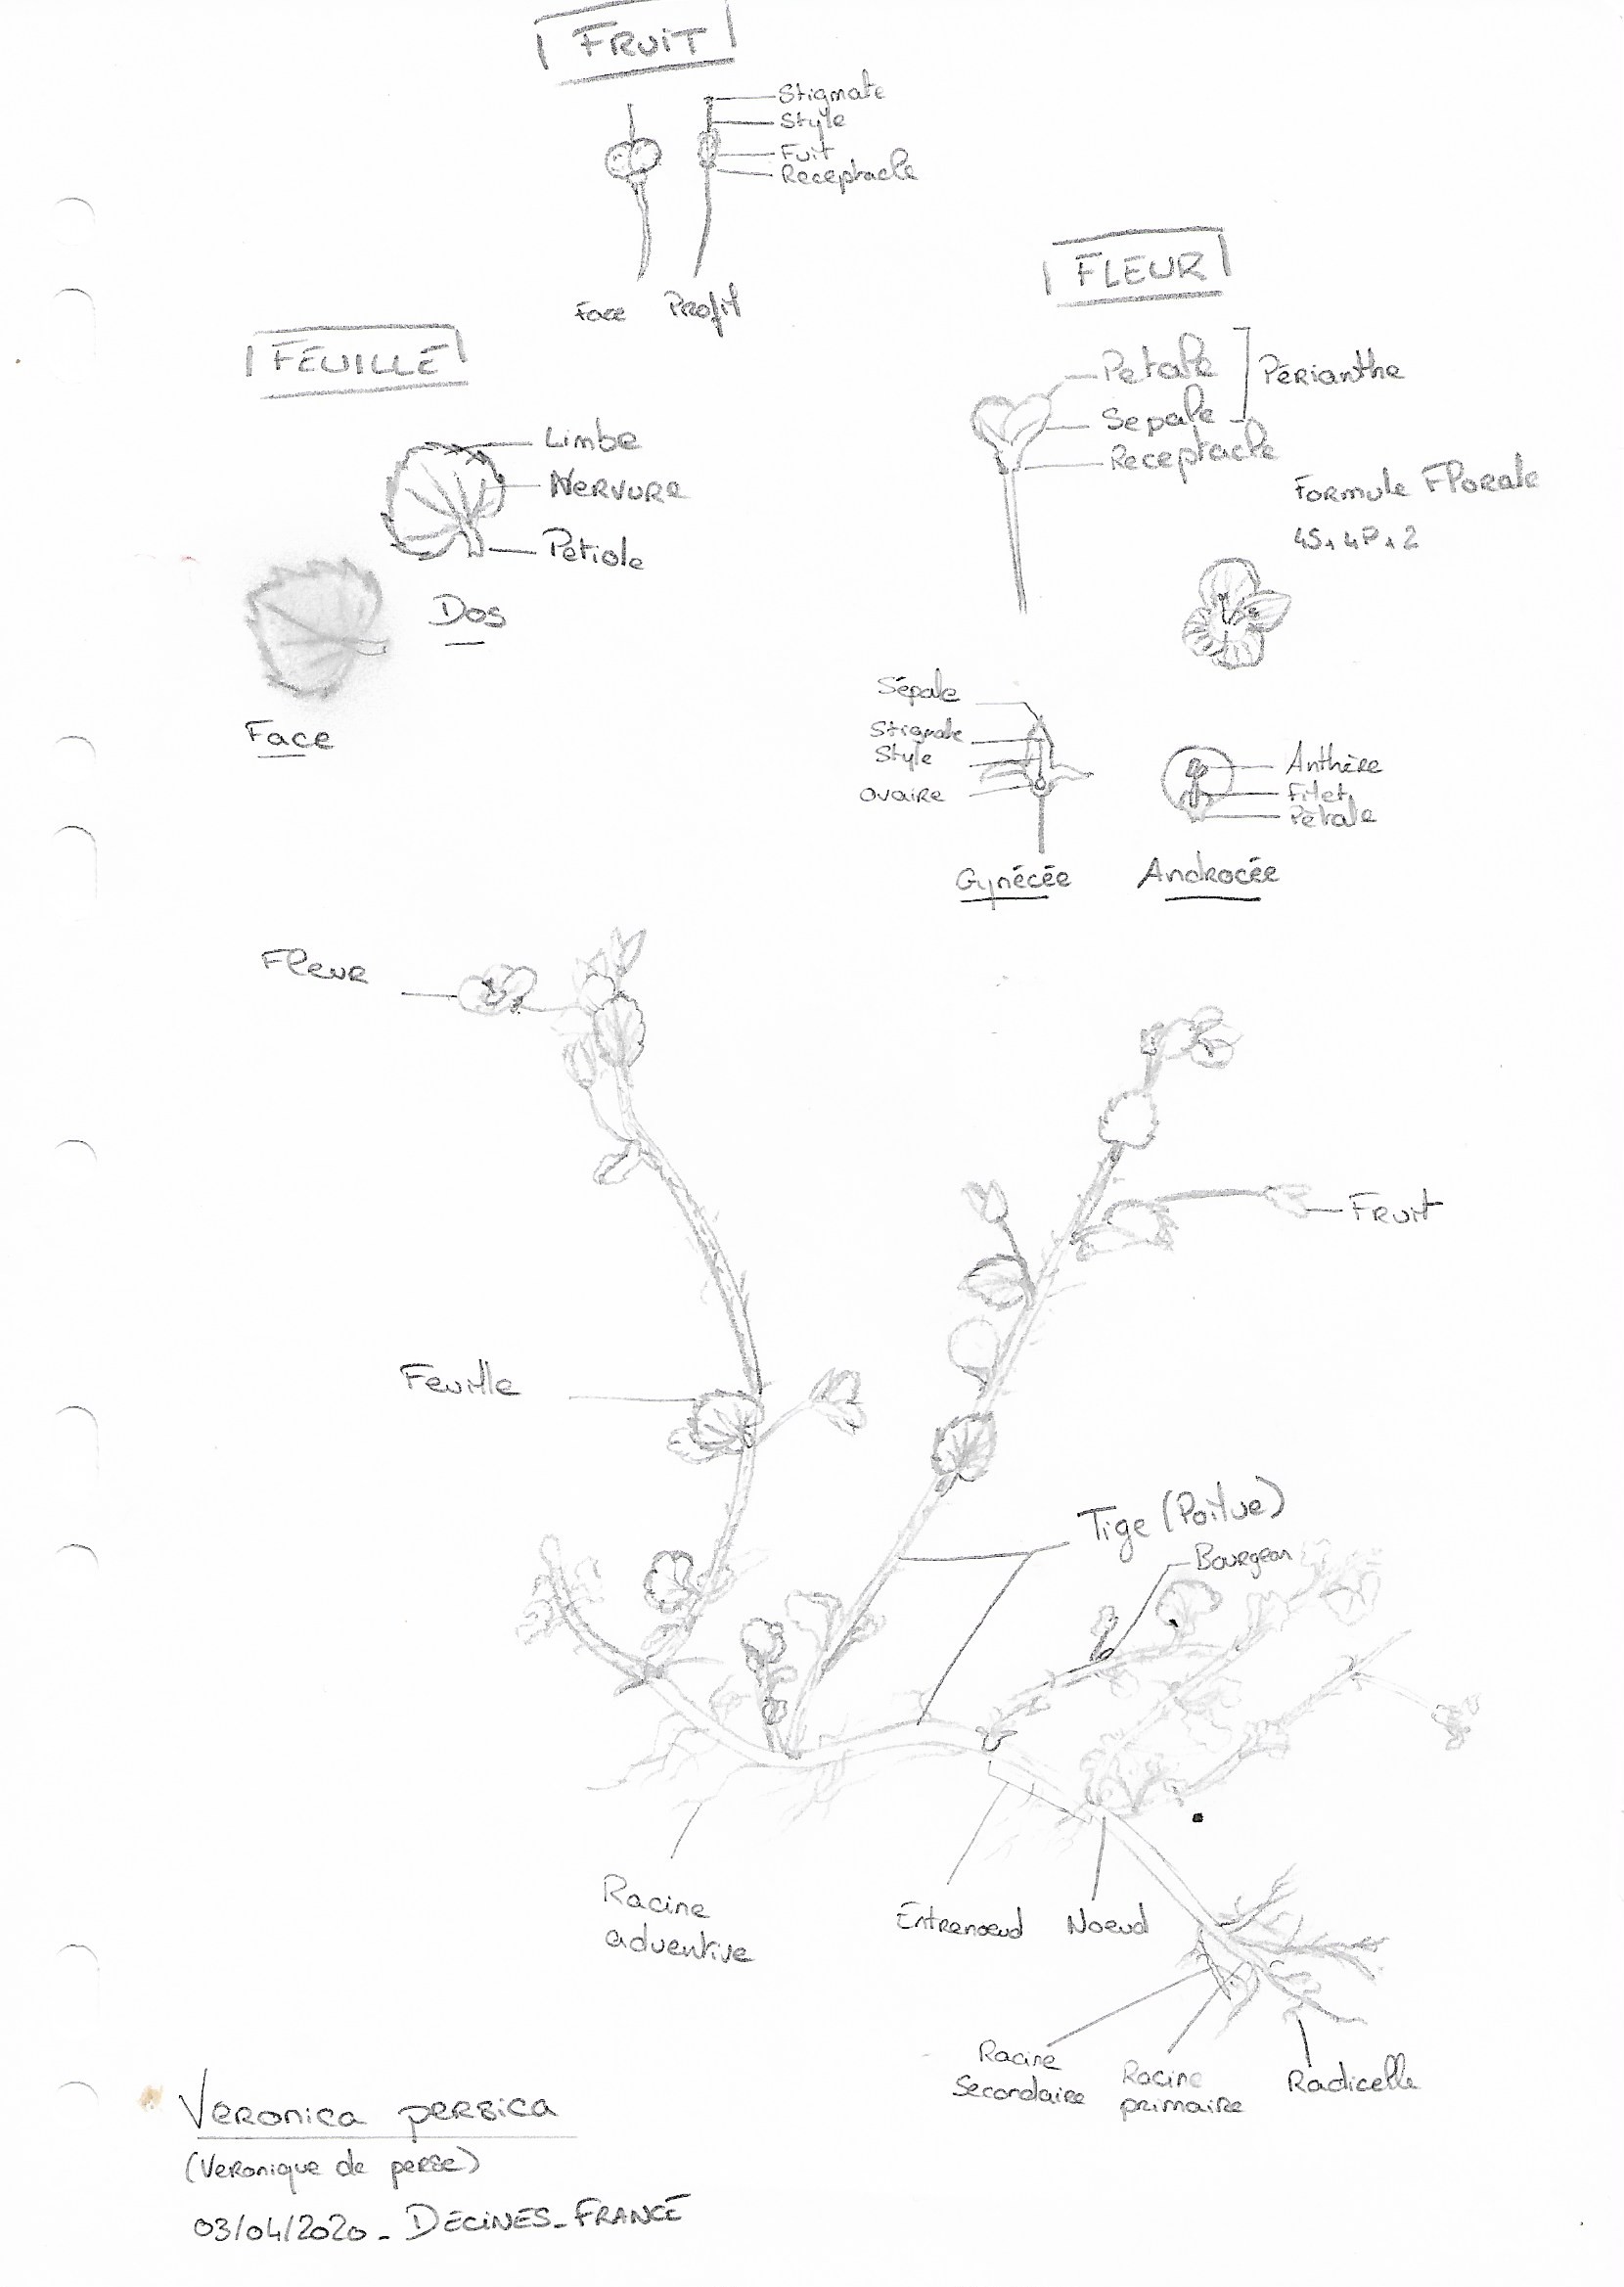 FRUIT
Stigmate
Style
Fuit
Receptacle
Face Profil
FLEUR
Petale
Sepale
Périanthe
Receptacle
Formule Florale
4S, 4P, 2
FEUILLE
Limbe
Nervure
Petiole
Dos
Face
Sépale
Stigmate
Style
Ovaire
Gynécée
Anthère
Filet
Pétale
Androcée
Fleur
Fruit
Feuille
Tige (Poilue)
Bourgeon
Racine
adventive
Entrenoeud Noeud
Racine
Secondaire
Racine
primaire
Radicelle
Veronica persica
(Veronique de perse)
03/04/2020 - DECINES - FRANCE